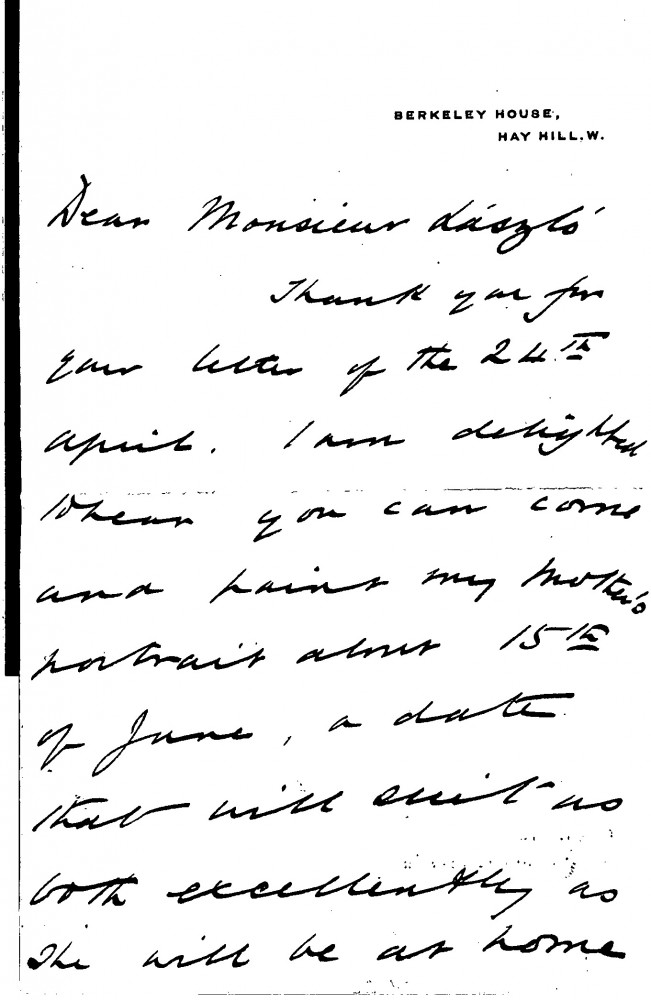 BERKELEY HOUSE,
HAY HILL. W.
Dear Monsieur László
Thank you for
your letter of the 24th
April. I am delighted
to hear you can come
and paint my Mother's
portrait about 15th
of June, a date
that will suit us
both excellently as
she will be at home